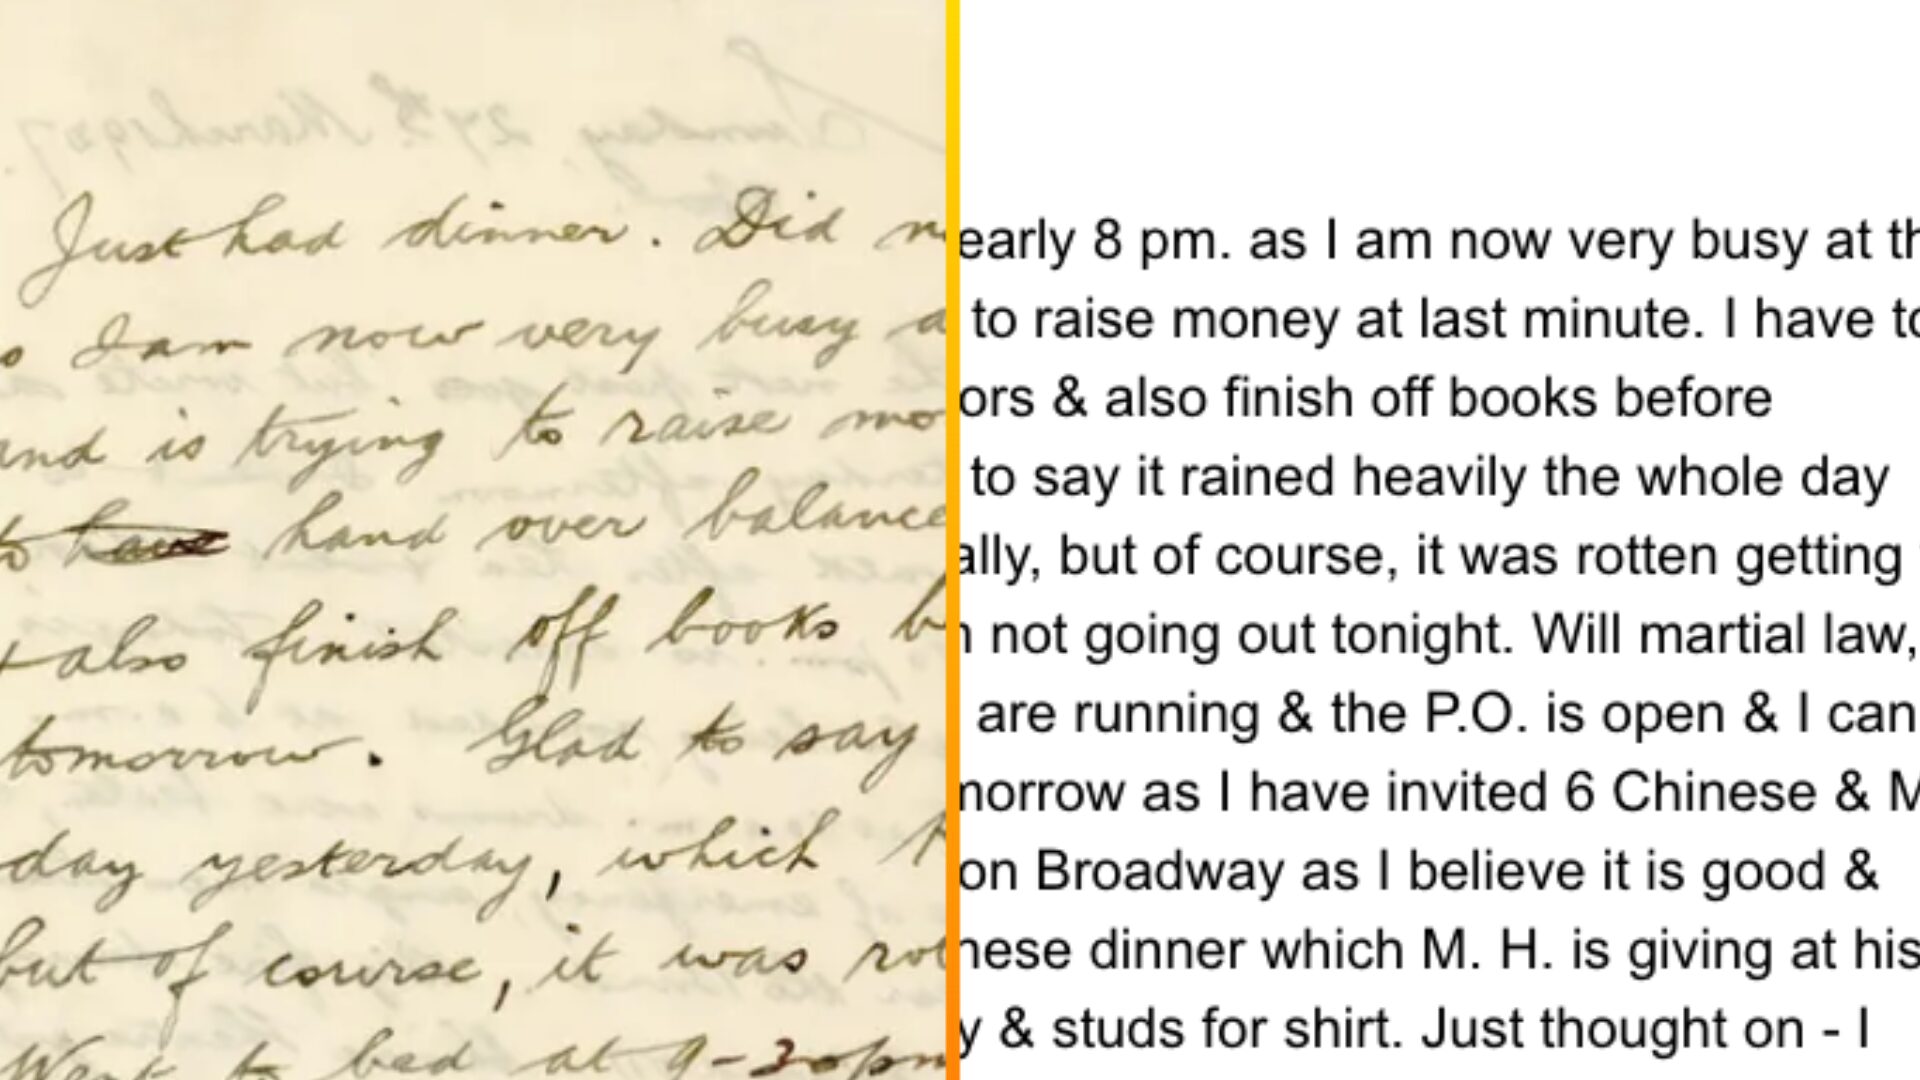 Sunday, 27th March 1927.
Just had dinner. Did n
o I am now very busy a
and is trying to raise mo
to have hand over balance
+ also finish off books b
tomorrow. Glad to say
day yesterday, which
but of course, it was rot
Went to bed at 9-30pm
early 8 pm. as I am now very busy at th
to raise money at last minute. I have to
ors & also finish off books before
to say it rained heavily the whole day
ally, but of course, it was rotten getting
n not going out tonight. Will martial law,
are running & the P.O. is open & I can
morrow as I have invited 6 Chinese & M
on Broadway as I believe it is good &
nese dinner which M. H. is giving at his
y & studs for shirt. Just thought on - I